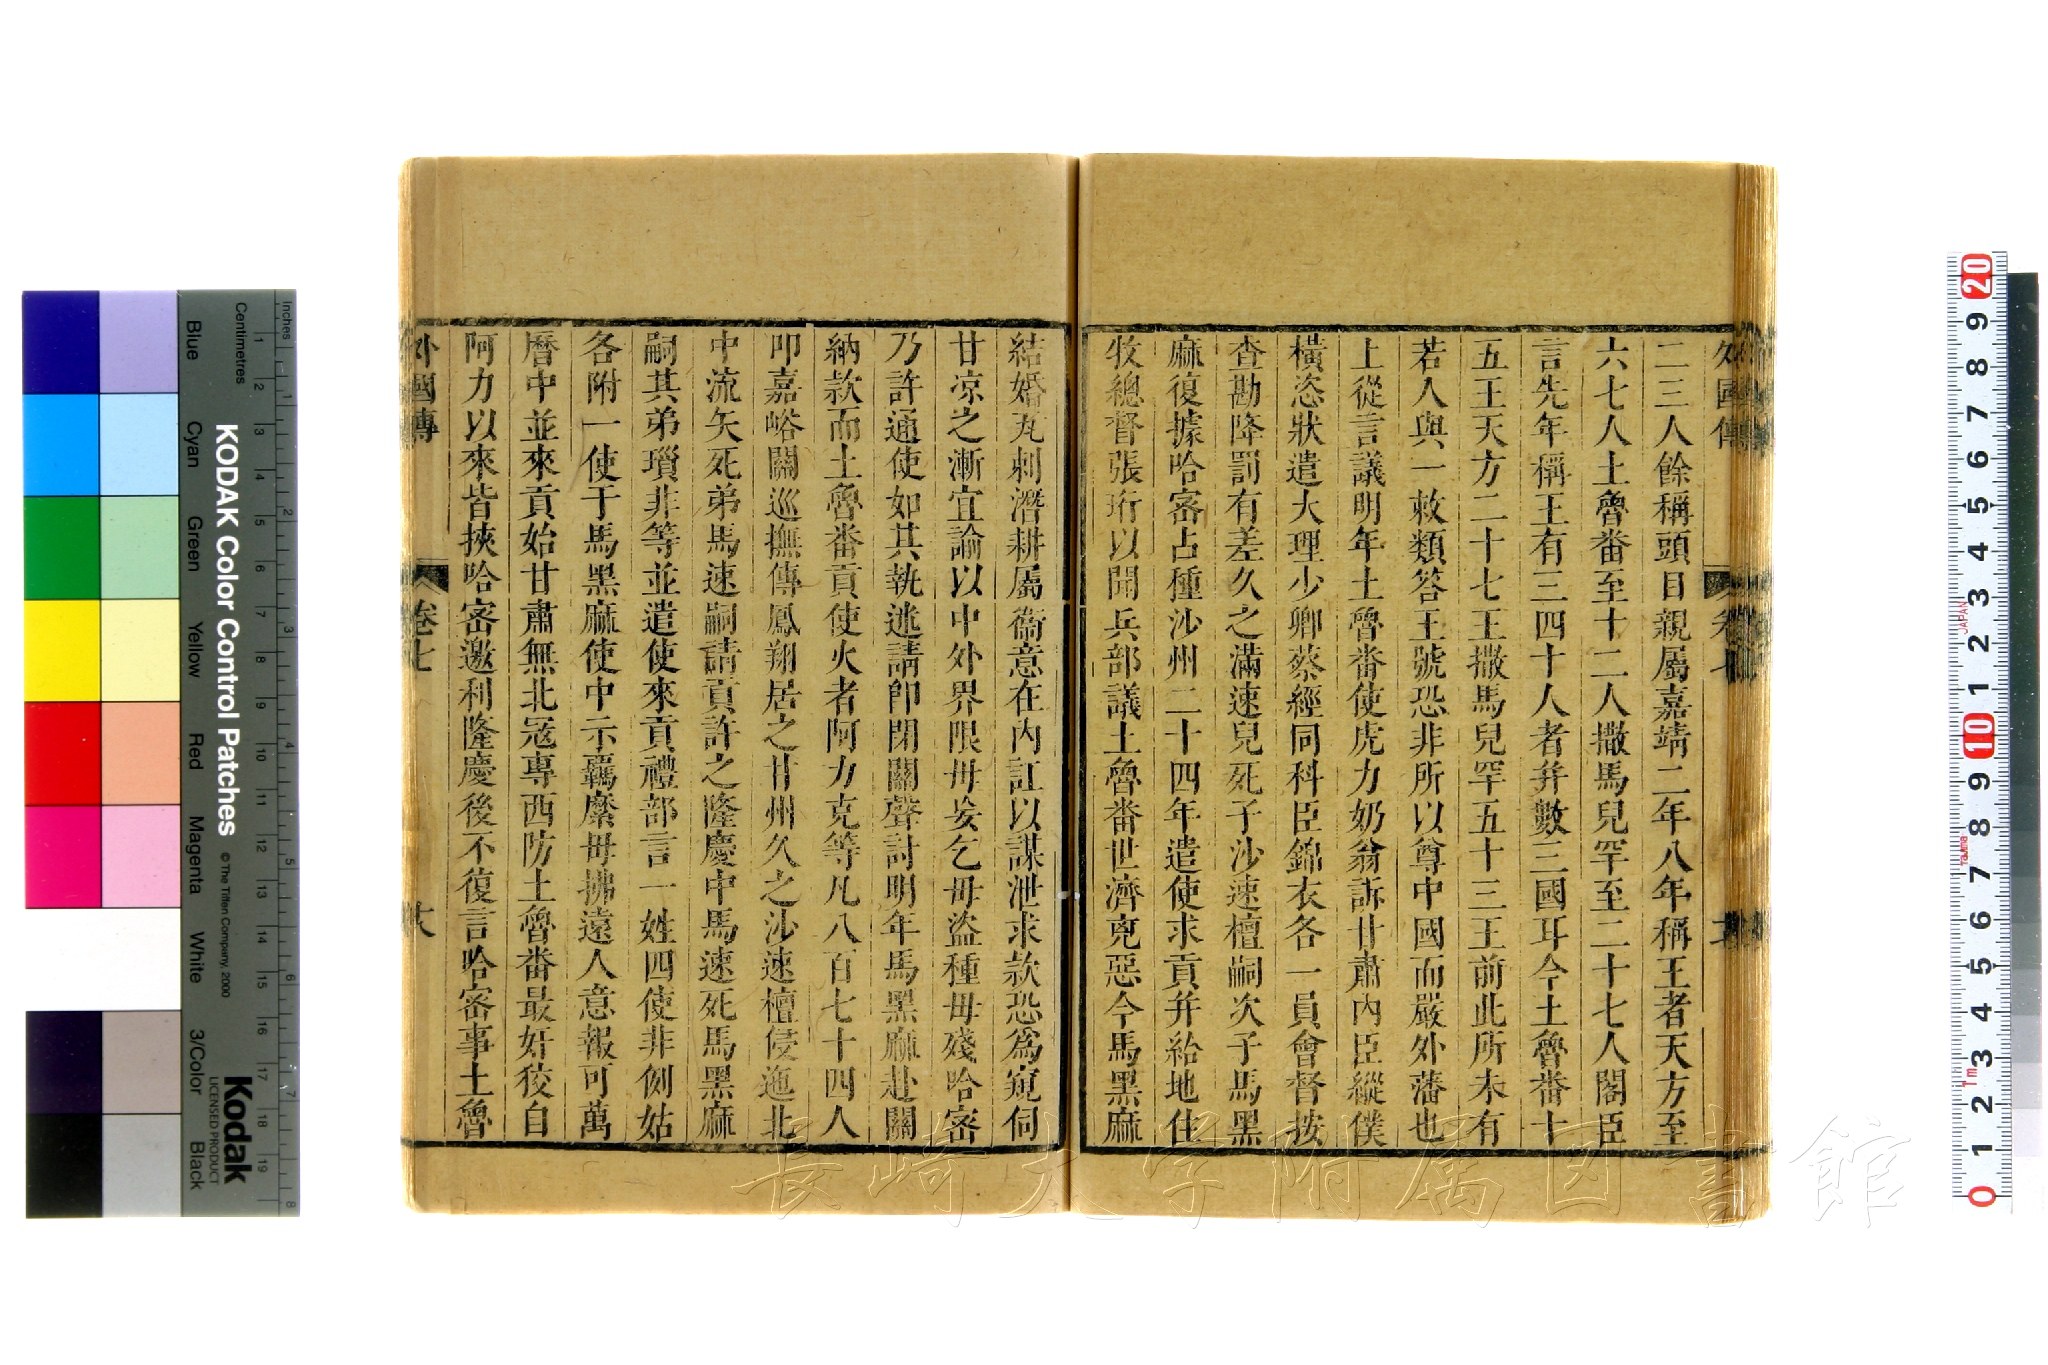 外國傳
卷七
二三人餘稱頭目親屬嘉靖二年八年稱王者天方至
六七人土魯畨至十二人撒馬兒罕至二十七人閣臣
言先年稱王有三四十人者幷數三國耳今土魯畨十
五王天方二十七王撒馬兒罕五十三王前此所未有
若人與一敕類答王號恐非所以尊中國而嚴外藩也
上從言議明年土魯畨使虎力奶翁訴甘肅內臣縱僕
橫恣狀遣大理少卿蔡經同科臣錦衣各一員會督按
查勘降罰有差久之滿速兒死子沙速檀嗣次子馬黑
麻復據哈密占種沙州二十四年遣使求貢幷給地住
牧總督張珩以聞兵部議土魯畨世濟兇惡今馬黑麻
結婚瓦剌潛耕屬衞意在內訌以謀泄求款恐爲窺伺
甘凉之漸宜諭以中外界限毋妄乞毋盜種毋殘哈密
乃許通使如其執迷請卽閉關聲討明年馬黑麻赴關
納款而土魯畨貢使火者阿力克等凡八百七十四人
叩嘉峪關巡撫傳鳳翔居之甘州久之沙速檀侵迤北
中流矢死弟馬速嗣請貢許之隆慶中馬速死馬黑麻
嗣其弟瑣非等並遣使來貢禮部言一姓四使非例姑
各附一使于馬黑麻使中示羈縻毋拂遠人意報可萬
曆中並來貢始甘肅無北寇專西防土魯畨最奸狡自
阿力以來皆挾哈密邀利隆慶後不復言哈密事土魯
外國傳
卷七
KODAK Color Control Patches
© The Tiffen Company, 2000
Kodak
LICENSED PRODUCT
Inches
Centimetres
Blue
Cyan
Green
Yellow
Red
Magenta
White
3/Color
Black
長崎大学附属図書館
JAPAN